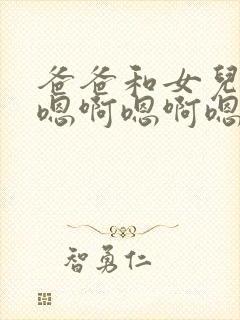 爸爸和女兒
嗯啊嗯啊嗯
智勇仁